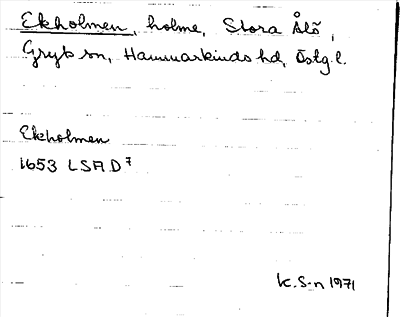 Ekholmen, holme, Stora Ålö,
Gryts sn, Hammarkinds hd, Östg.l.
Ekholmen
1653 LSA D⁷
K.S-n 1971